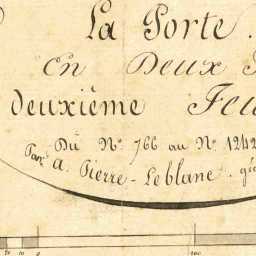 La Porte
en Deux
deuxième
Du Nº 766 au Nº 1242
Par A. Pierre-Leblanc.
100